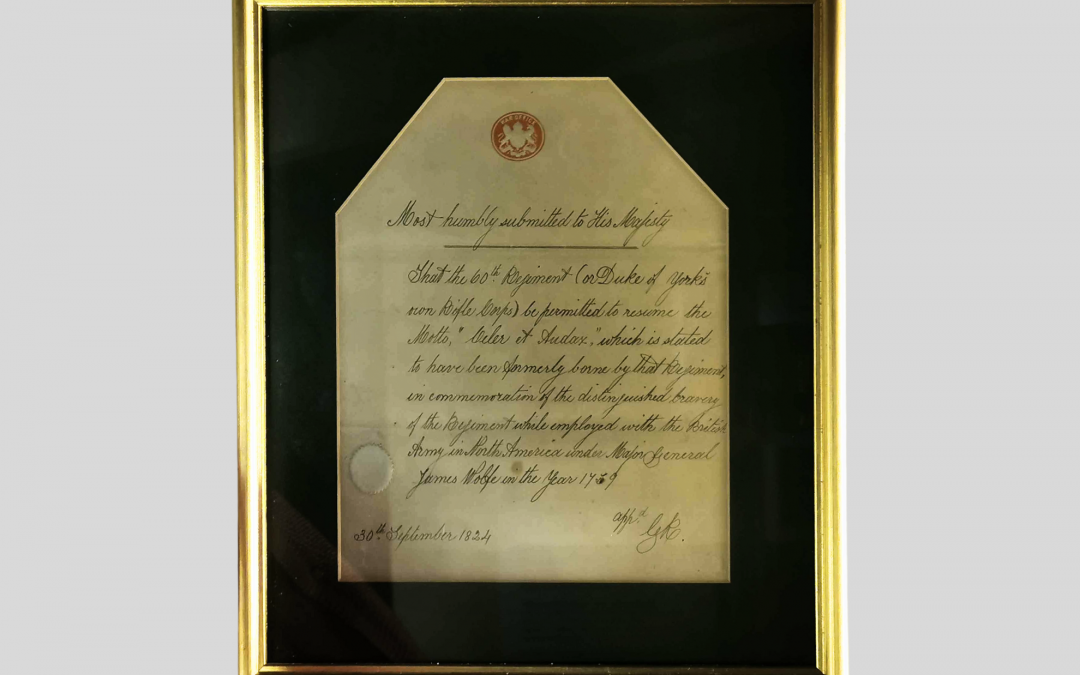 WAR OFFICE
Most humbly submitted to His Majesty
That the 60th Regiment (or Duke of York's
own Rifle Corps) be permitted to resume the
Motto, "Celer et Audax," which is stated
to have been formerly borne by that Regiment,
in commemoration of the distinguished bravery
of the Regiment while employed with the British
Army in North America under Major General
James Wolfe in the Year 1759
appd
GR.
30th September 1824